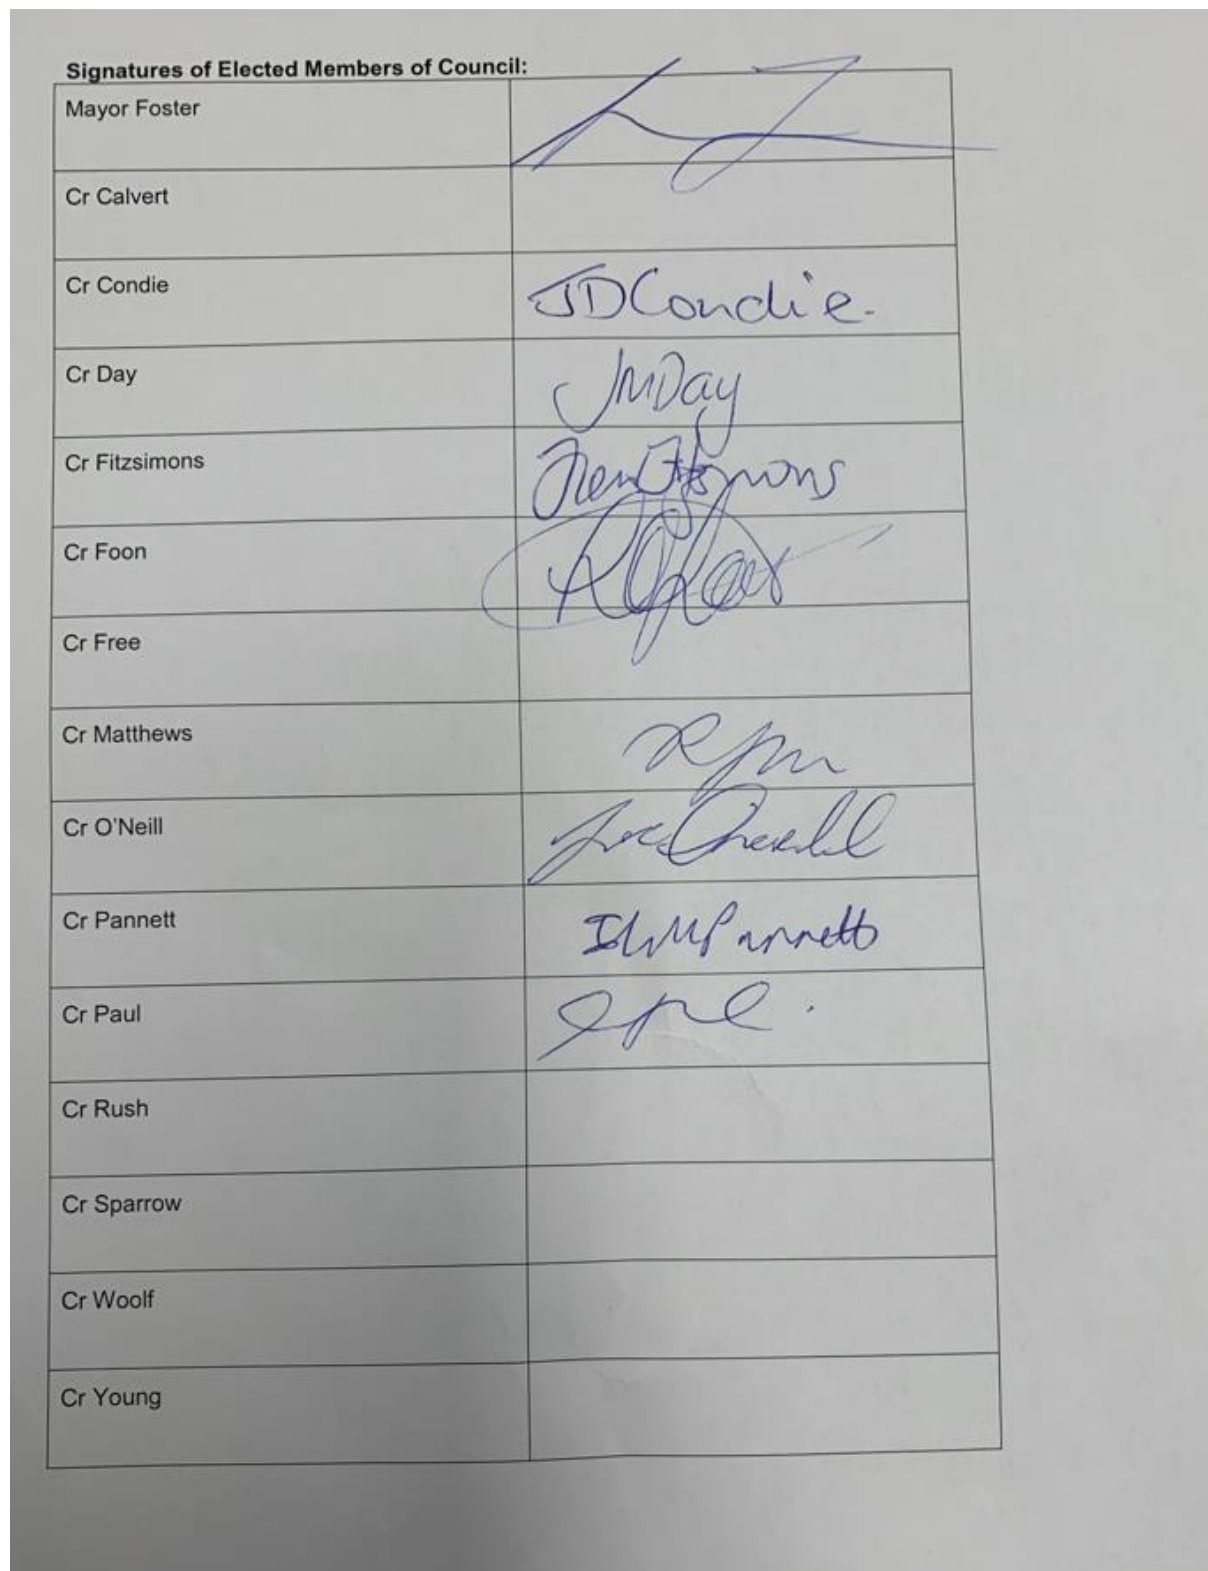 Signatures of Elected Members of Council:
Mayor Foster
Cr Calvert
Cr Condie JDCondie.
Cr Day JMDay
Cr Fitzsimons
Cr Foon
Cr Free
Cr Matthews
Cr O'Neill
Cr Pannett Pannett
Cr Paul
Cr Rush
Cr Sparrow
Cr Woolf
Cr Young